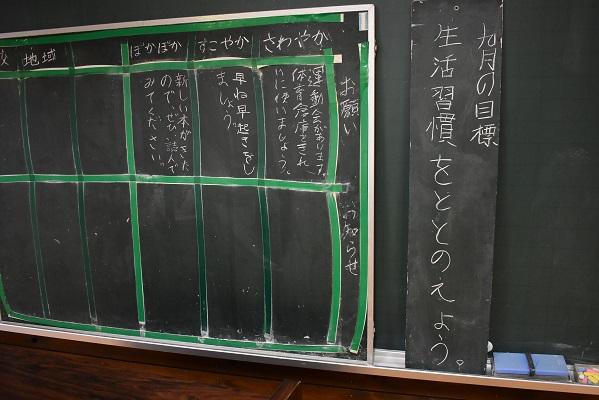 九月の目標
生活習慣をととのえよう。
お願い
お知らせ
さわやか
運動会があります。
体育倉庫をきれ
いに使いましょう。
すこやか
早ね早起きをし
ましょう。
ぽかぽか
新しい本がきた
ので、ぜひ読んで
みてください。
地域